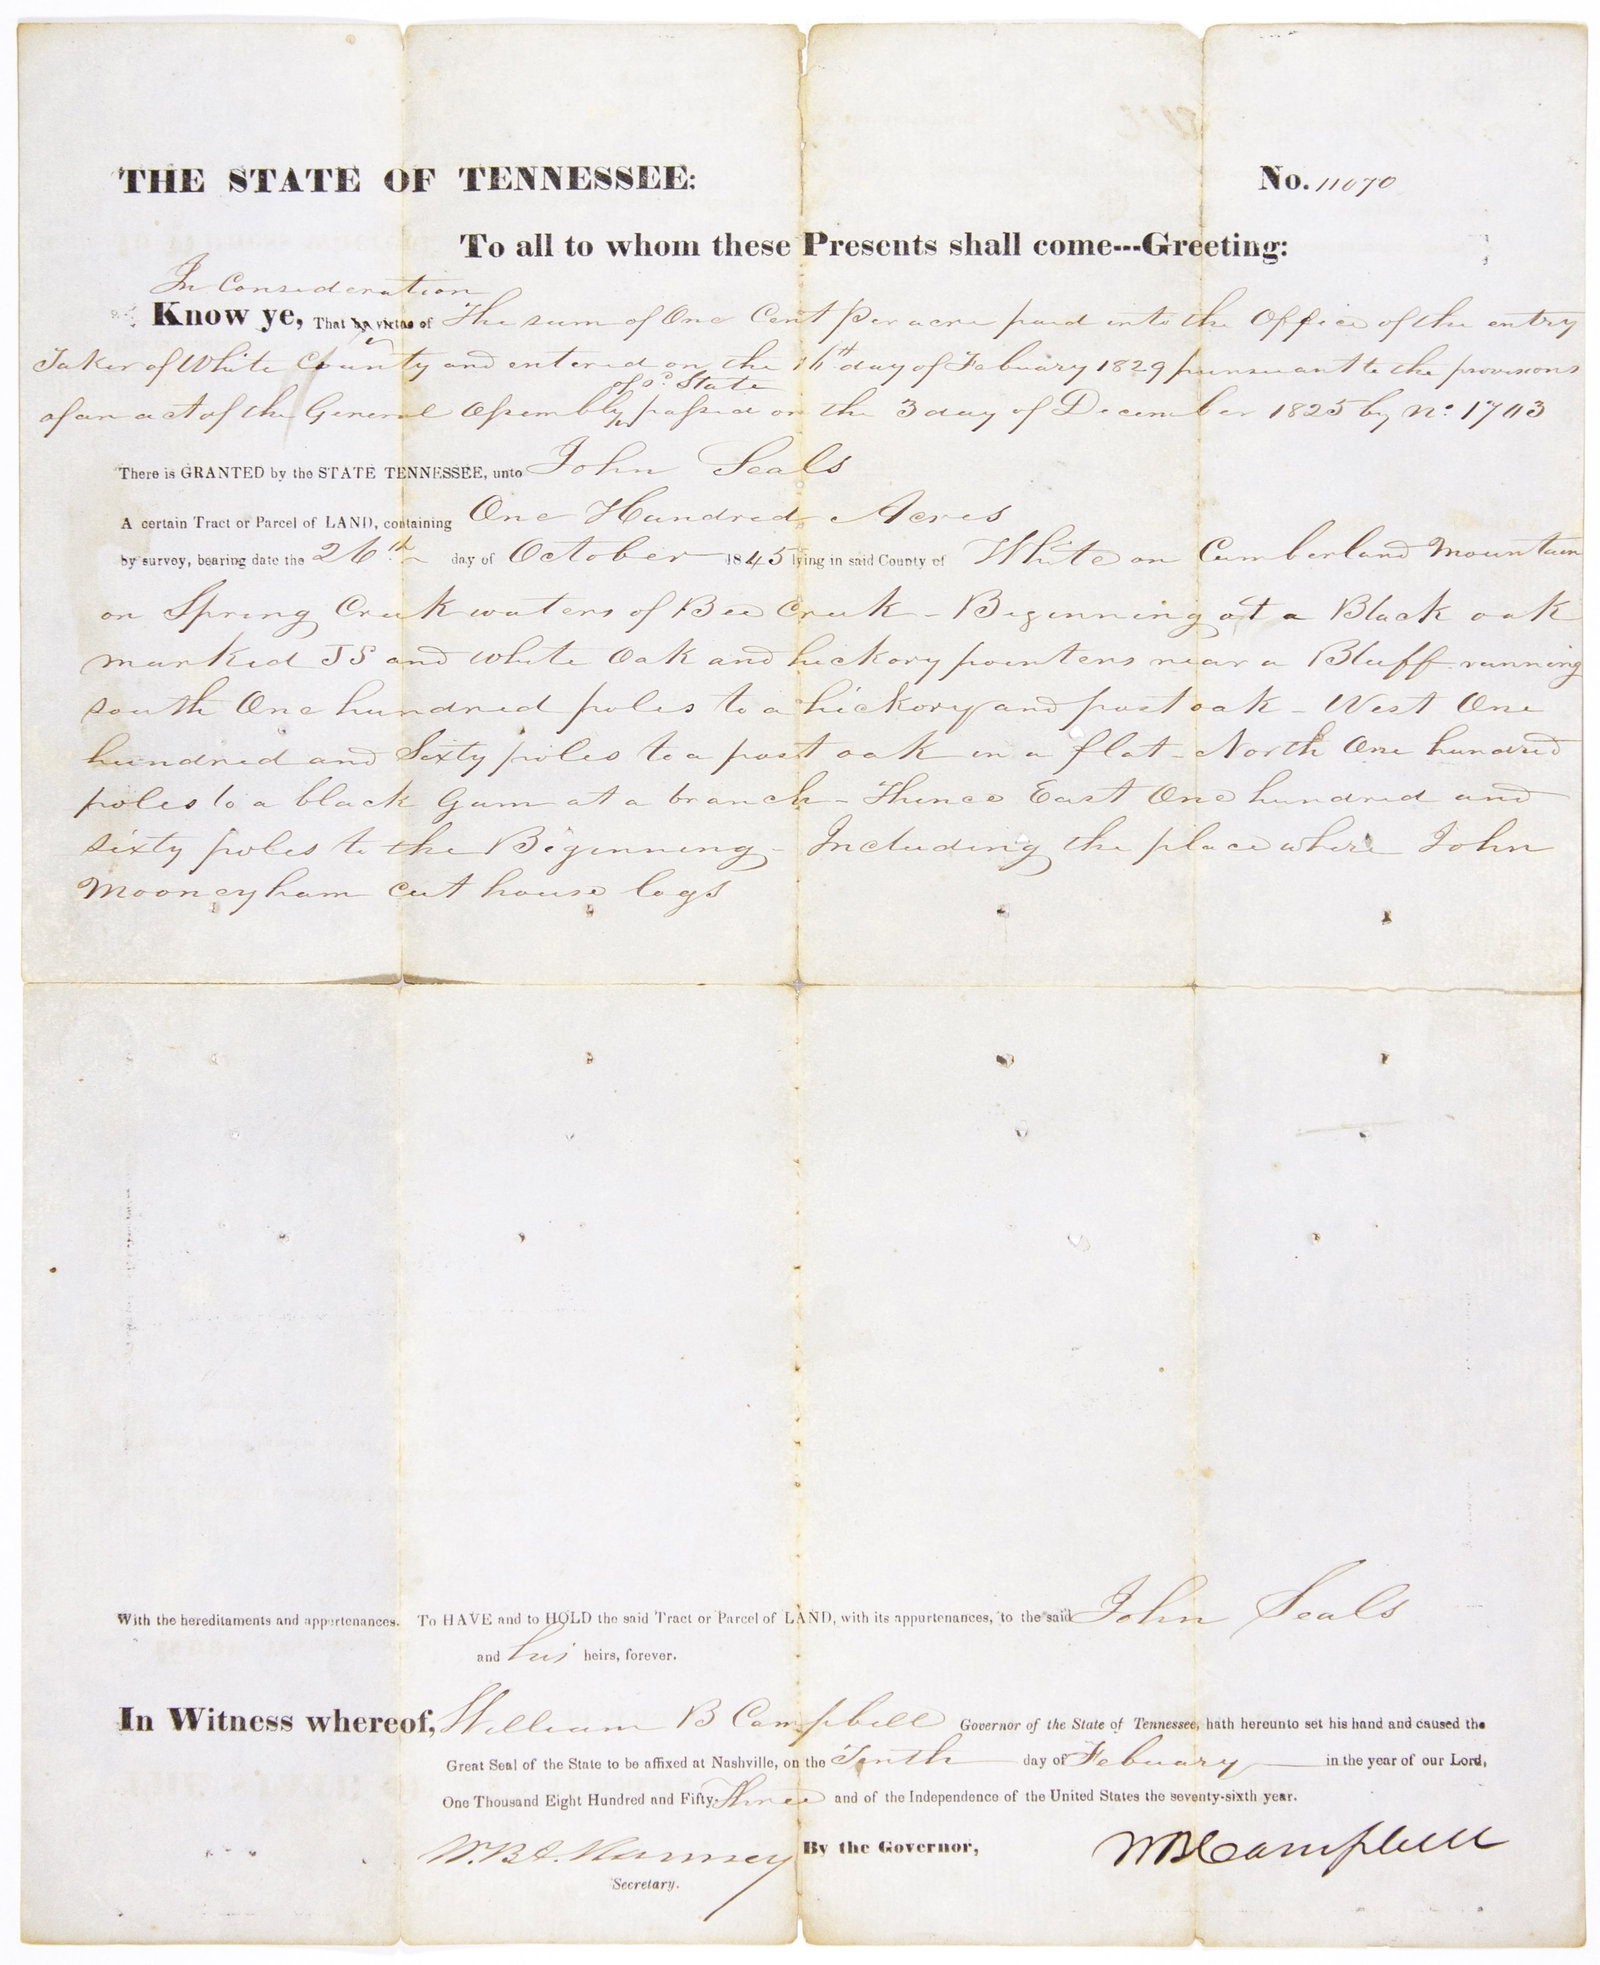 THE STATE OF TENNESSEE: No. 11070
To all to whom these Presents shall come---Greeting:
In Consideration
Know ye, That by virtue of The sum of One Cent per acre paid into the Office of the entry
Taker of White County and entered on the 16th day of Febuary 1829 pursuant to the provisions
of sd State
of an act of the General Assembly passed on the 3 day of December 1825 by No 1743
There is GRANTED by the STATE TENNESSEE, unto John Seals
A certain Tract or Parcel of LAND, containing One Hundred Acres
by survey, bearing date the 26th day of October 1845 lying in said County of White on Cumberland Mountain
on Spring Creek waters of Bee Creek - Beginning at a Black oak
marked JS and white Oak and hickory pointers near a Bluff running
south One hundred poles to a hickory and post oak - West One
hundred and Sixty poles to a post oak in a flat - North One hundred
poles to a black Gum at a branch - Thence East One hundred and
sixty poles to the Beginning - Including the place where John
Mooneyham cut house logs
With the hereditaments and appertenances. To HAVE and to HOLD the said Tract or Parcel of LAND, with its appurtenances, to the said John Seals
and his heirs, forever.
In Witness whereof, William B Campbell Governor of the State of Tennessee, hath hereunto set his hand and caused the
Great Seal of the State to be affixed at Nashville, on the Tenth day of Febuary in the year of our Lord,
One Thousand Eight Hundred and Fifty-Three and of the Independence of the United States the seventy-sixth year.
W.B.A. Ramsey By the Governor, WB Campbell
Secretary.